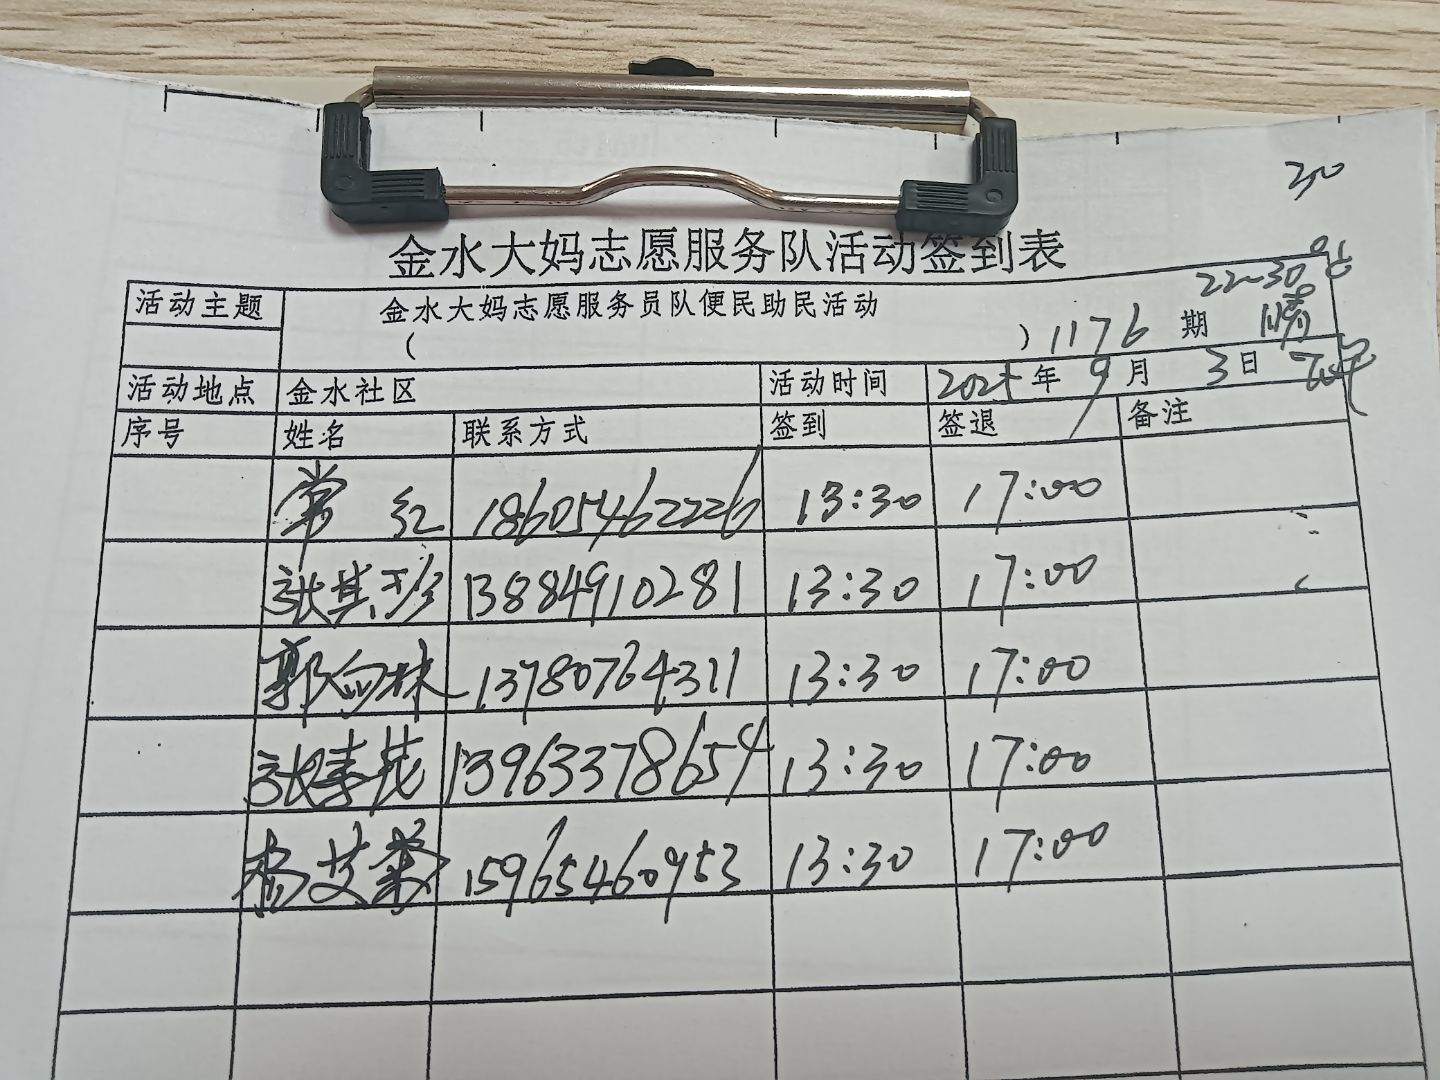 金水大妈志愿服务队活动签到表
活动主题 金水大妈志愿服务员队便民助民活动 22~30℃
( ) 1176 期 晴
活动地点 金水社区 活动时间 2025年 9月 3日 下午
序号 姓名 联系方式 签到 签退 备注
常红 18605462226 13:30 17:00
张其珍 13884910281 13:30 17:00
郭向林 13780764311 13:30 17:00
张春茂 13963378654 13:30 17:00
杨艾叶 15965460953 13:30 17:00